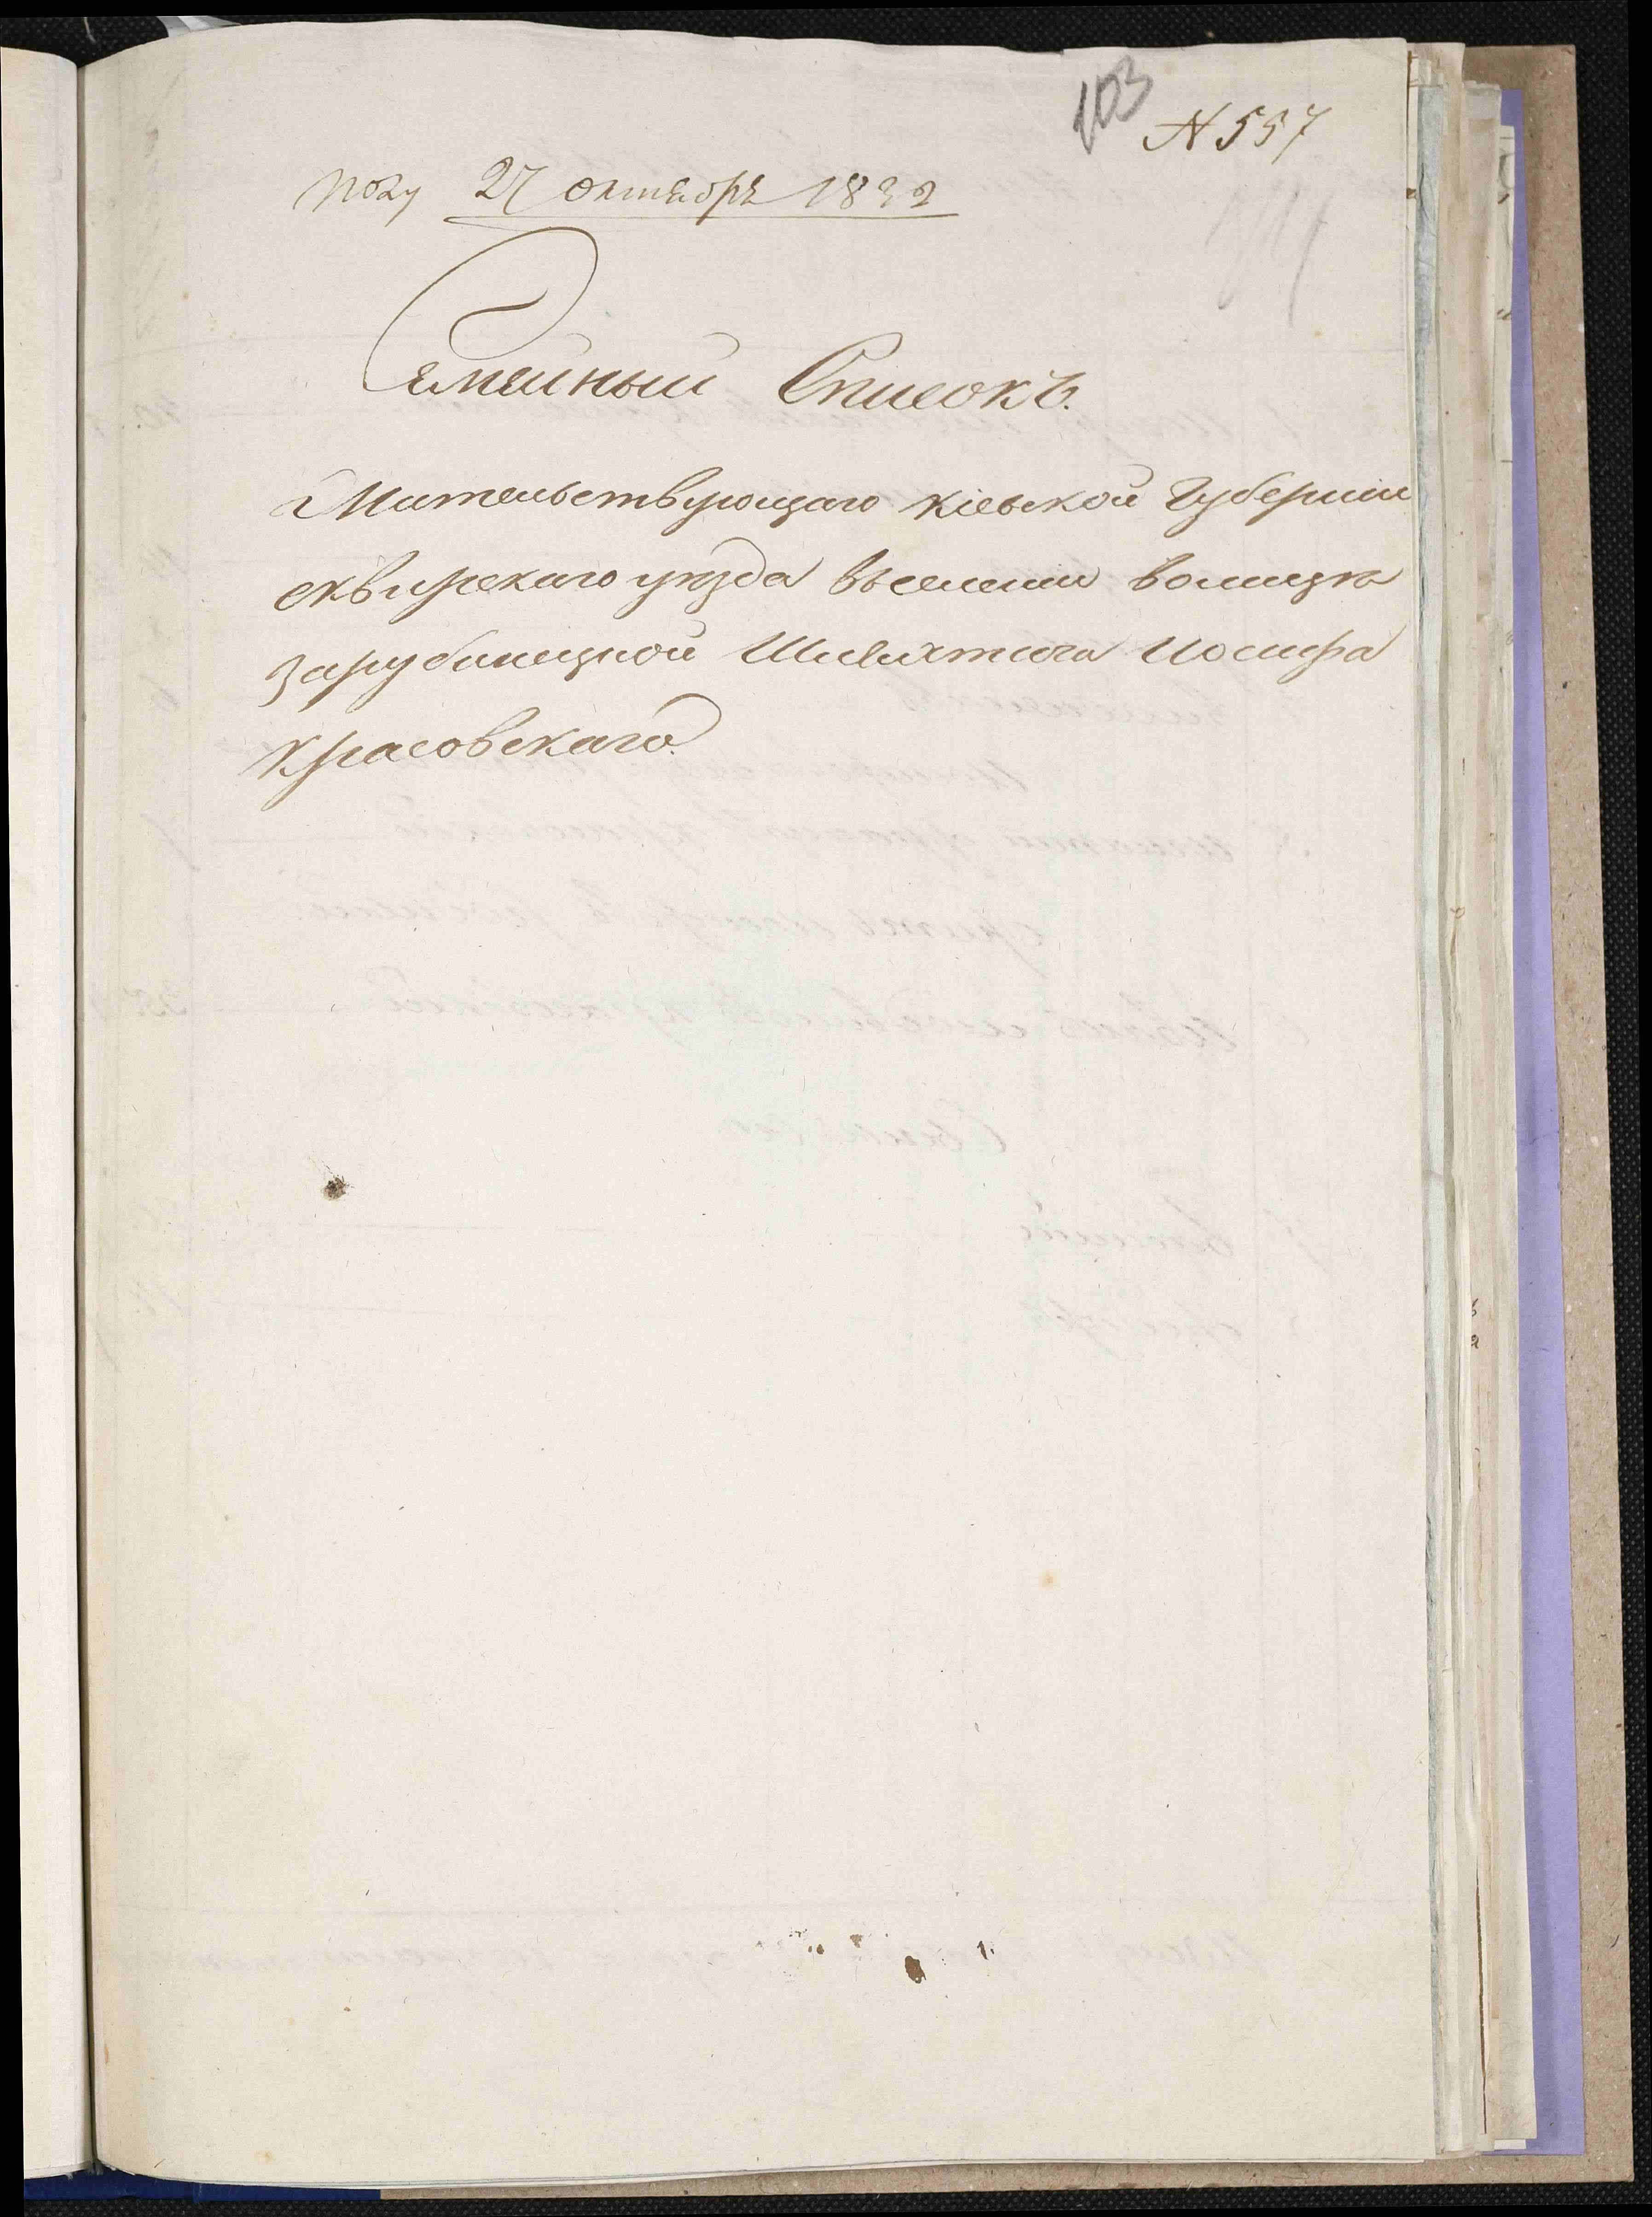 103
N 557
27 октября 1832
Семейный Списокъ.
Жительствующаго Кіевской Губерніи
сквирскаго уезда Вселеніи волицка
зарубинецкой Шляхтича Иосифа
Красовскаго.